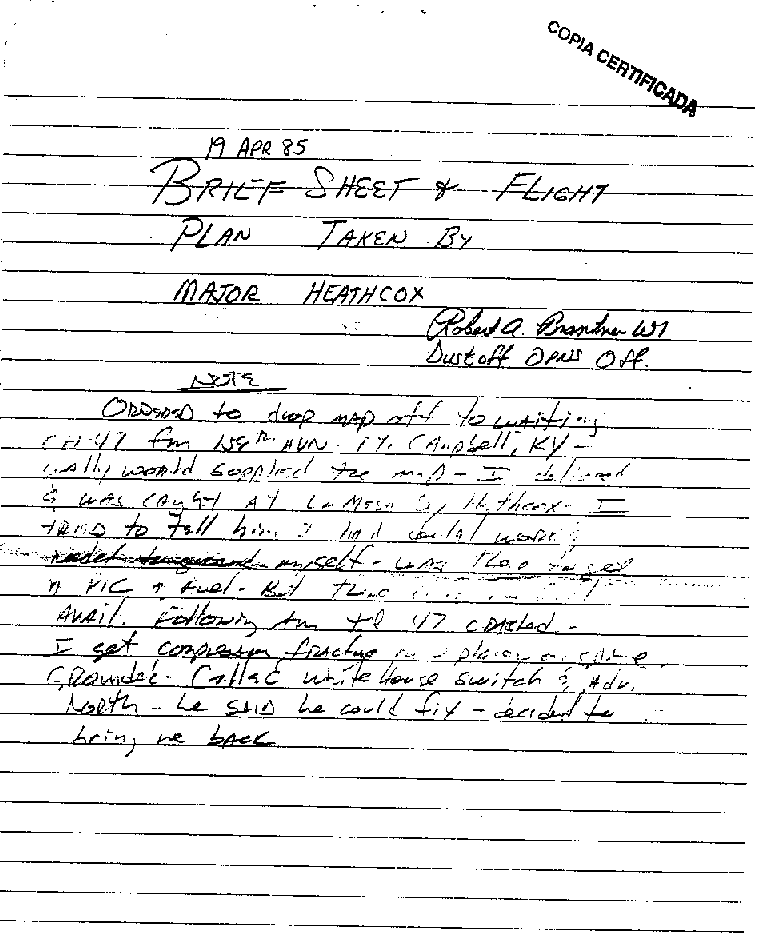 COPIA CERTIFICADA
19 APR 85
BRIEF SHEET & FLIGHT
PLAN TAKEN BY
MAJOR HEATHCOX
Robert A. W1
Dustoff OPNS Off.
NOTE
ORDERED to drop map off to waiting
CH-47 fm 159th AVN. FT. CAmpbell, KY -
would supplied the map - I delivered
& was caught AT La Mesa by Hethcox - I
to Tell him I had
myself - was then
PIC Fuel - But
Avail. Following the 47 crashed -
I get compression fracture in places on spine.
Grounded - Called White House switch & Adv.
North - he said he could fix - decided to
bring me back